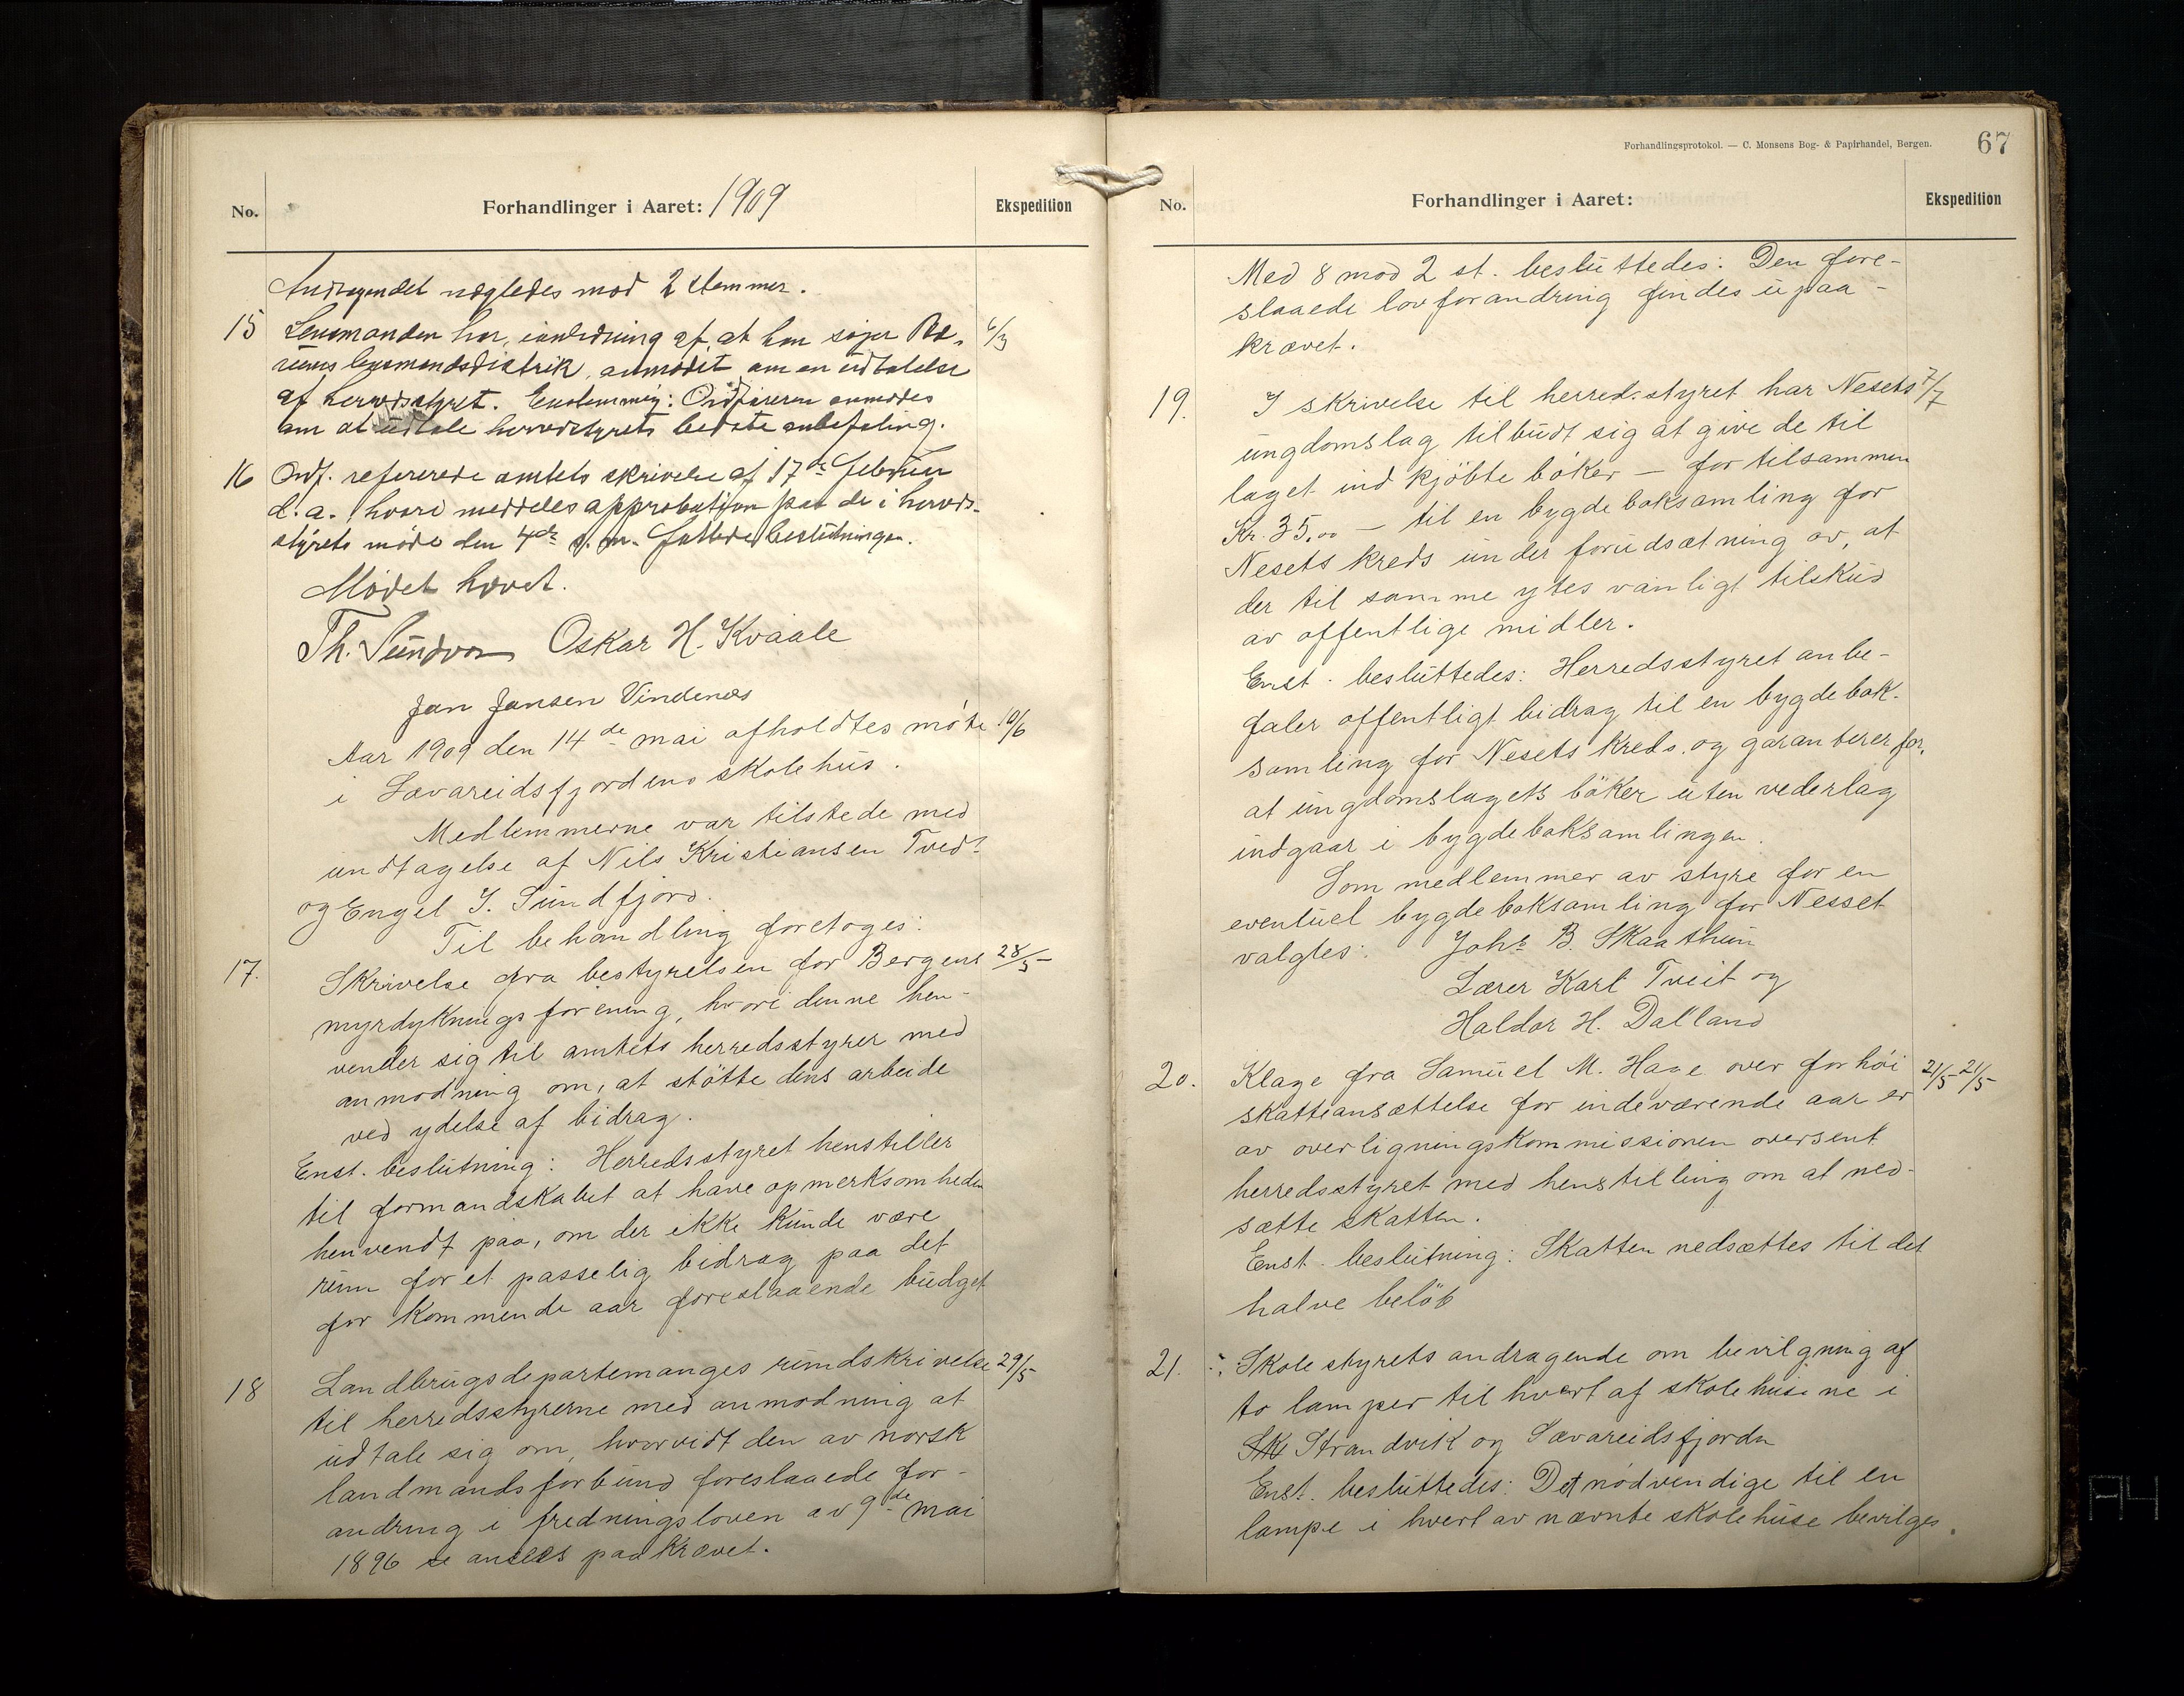 No.
Forhandlinger i Aaret: 1909
Ekspedition
Andragendet nægtedes mod 2 stemmer.
15 Lensmanden har, i anledning af, at han søger 6/3
lensmandsdistrik, anmodet om en udtalelse
af herredsstyret. Enstemmig: Ordføreren anmodes
om at udtale herredsstyrets bedste anbefaling.
16 Ordf. refererede amtets skrivelse af 17de februar
d. a. hvori meddeles approbation paa de i herreds-
styrets møde den 4de s. m. fattede beslutninger.
Mødet hævet.
Th. Sundvor Oskar H. Kvaale
Jan Jansen Vindenes
Aar 1909 den 14de mai afholdtes møte 10/6
i Sævareidsfjordens skolehus.
Medlemmerne var tilstede med
undtagelse af Nils Kristiansen Tvedt
og Engel J. Sundfjord.
Til behandling foretoges:
17. Skrivelse fra bestyrelsen for Bergens 28/5
myrdyknings forening, hvori denne hen-
vender sig til amtets herredsstyrer med
anmodning om, at støtte dens arbeide
ved ydelse af bidrag.
Enst. beslutning: Herredsstyret henstiller
til formandskabet at have opmerksomheden
henvendt paa, om der ikke kunde være
rum for et passelig bidrag paa det
for kommende aar foreslaaende budget
18 Landbrugsdepartemanges rundskrivelse 29/5
til herredsstyrerne med anmodning at
udtale sig om, hvorvidt den av norsk
landmandsforbund foreslaaede for-
andring i fredningsloven av 9de mai
1896 se ansees paakrævet.
Forhandlingsprotokol. — C. Monsens Bog- & Papirhandel, Bergen.
67
No.
Forhandlinger i Aaret:
Ekspedition
Med 8 mod 2 st. besluttedes: Den fore-
slaaede lovforandring findes u paa-
krævet.
19. I skrivelse til herredsstyret har Nesets 7/7
ungdomslag tilbudt sig at give de til
laget ind kjöbte böker — for tilsammen
Kr. 35.00 — til en bygdeboksamling for
Nesets kreds under forudsætning av, at
der til samme ytes vanligt tilskud
av offentlige midler.
Enst. besluttedes: Herredsstyret anbe-
faler offentligt bidrag til en bygdebok-
samling for Nesets kreds. og garanterer for,
at ungdomslagets böker uten vederlag
indgaar i bygdeboksamlingen.
Som medlemmer av styre for en
eventuel bygdeboksamling for Nesset
valgtes: Johs B. Skaathun
Lærer Karl Tveit og
Haldor H. Dalland
20. Klage fra Samuel M. Hage over for höi 21/5 21/5
skatteansættelse for indeværende aar er
av overligningskommissionen oversent
herredsstyret med henstilling om at ned-
sætte skatten.
Enst. beslutning: Skatten nedsættes til det
halve belöb
21. Skolestyrets andragende om bevilgning af
to lamper til hvert af skolehusene i
Sk Strandvik og Sævareidsfjorden
Enst. besluttedes: Det nødvendige til en
lampe i hvert av nævnte skolehuse bevilges.